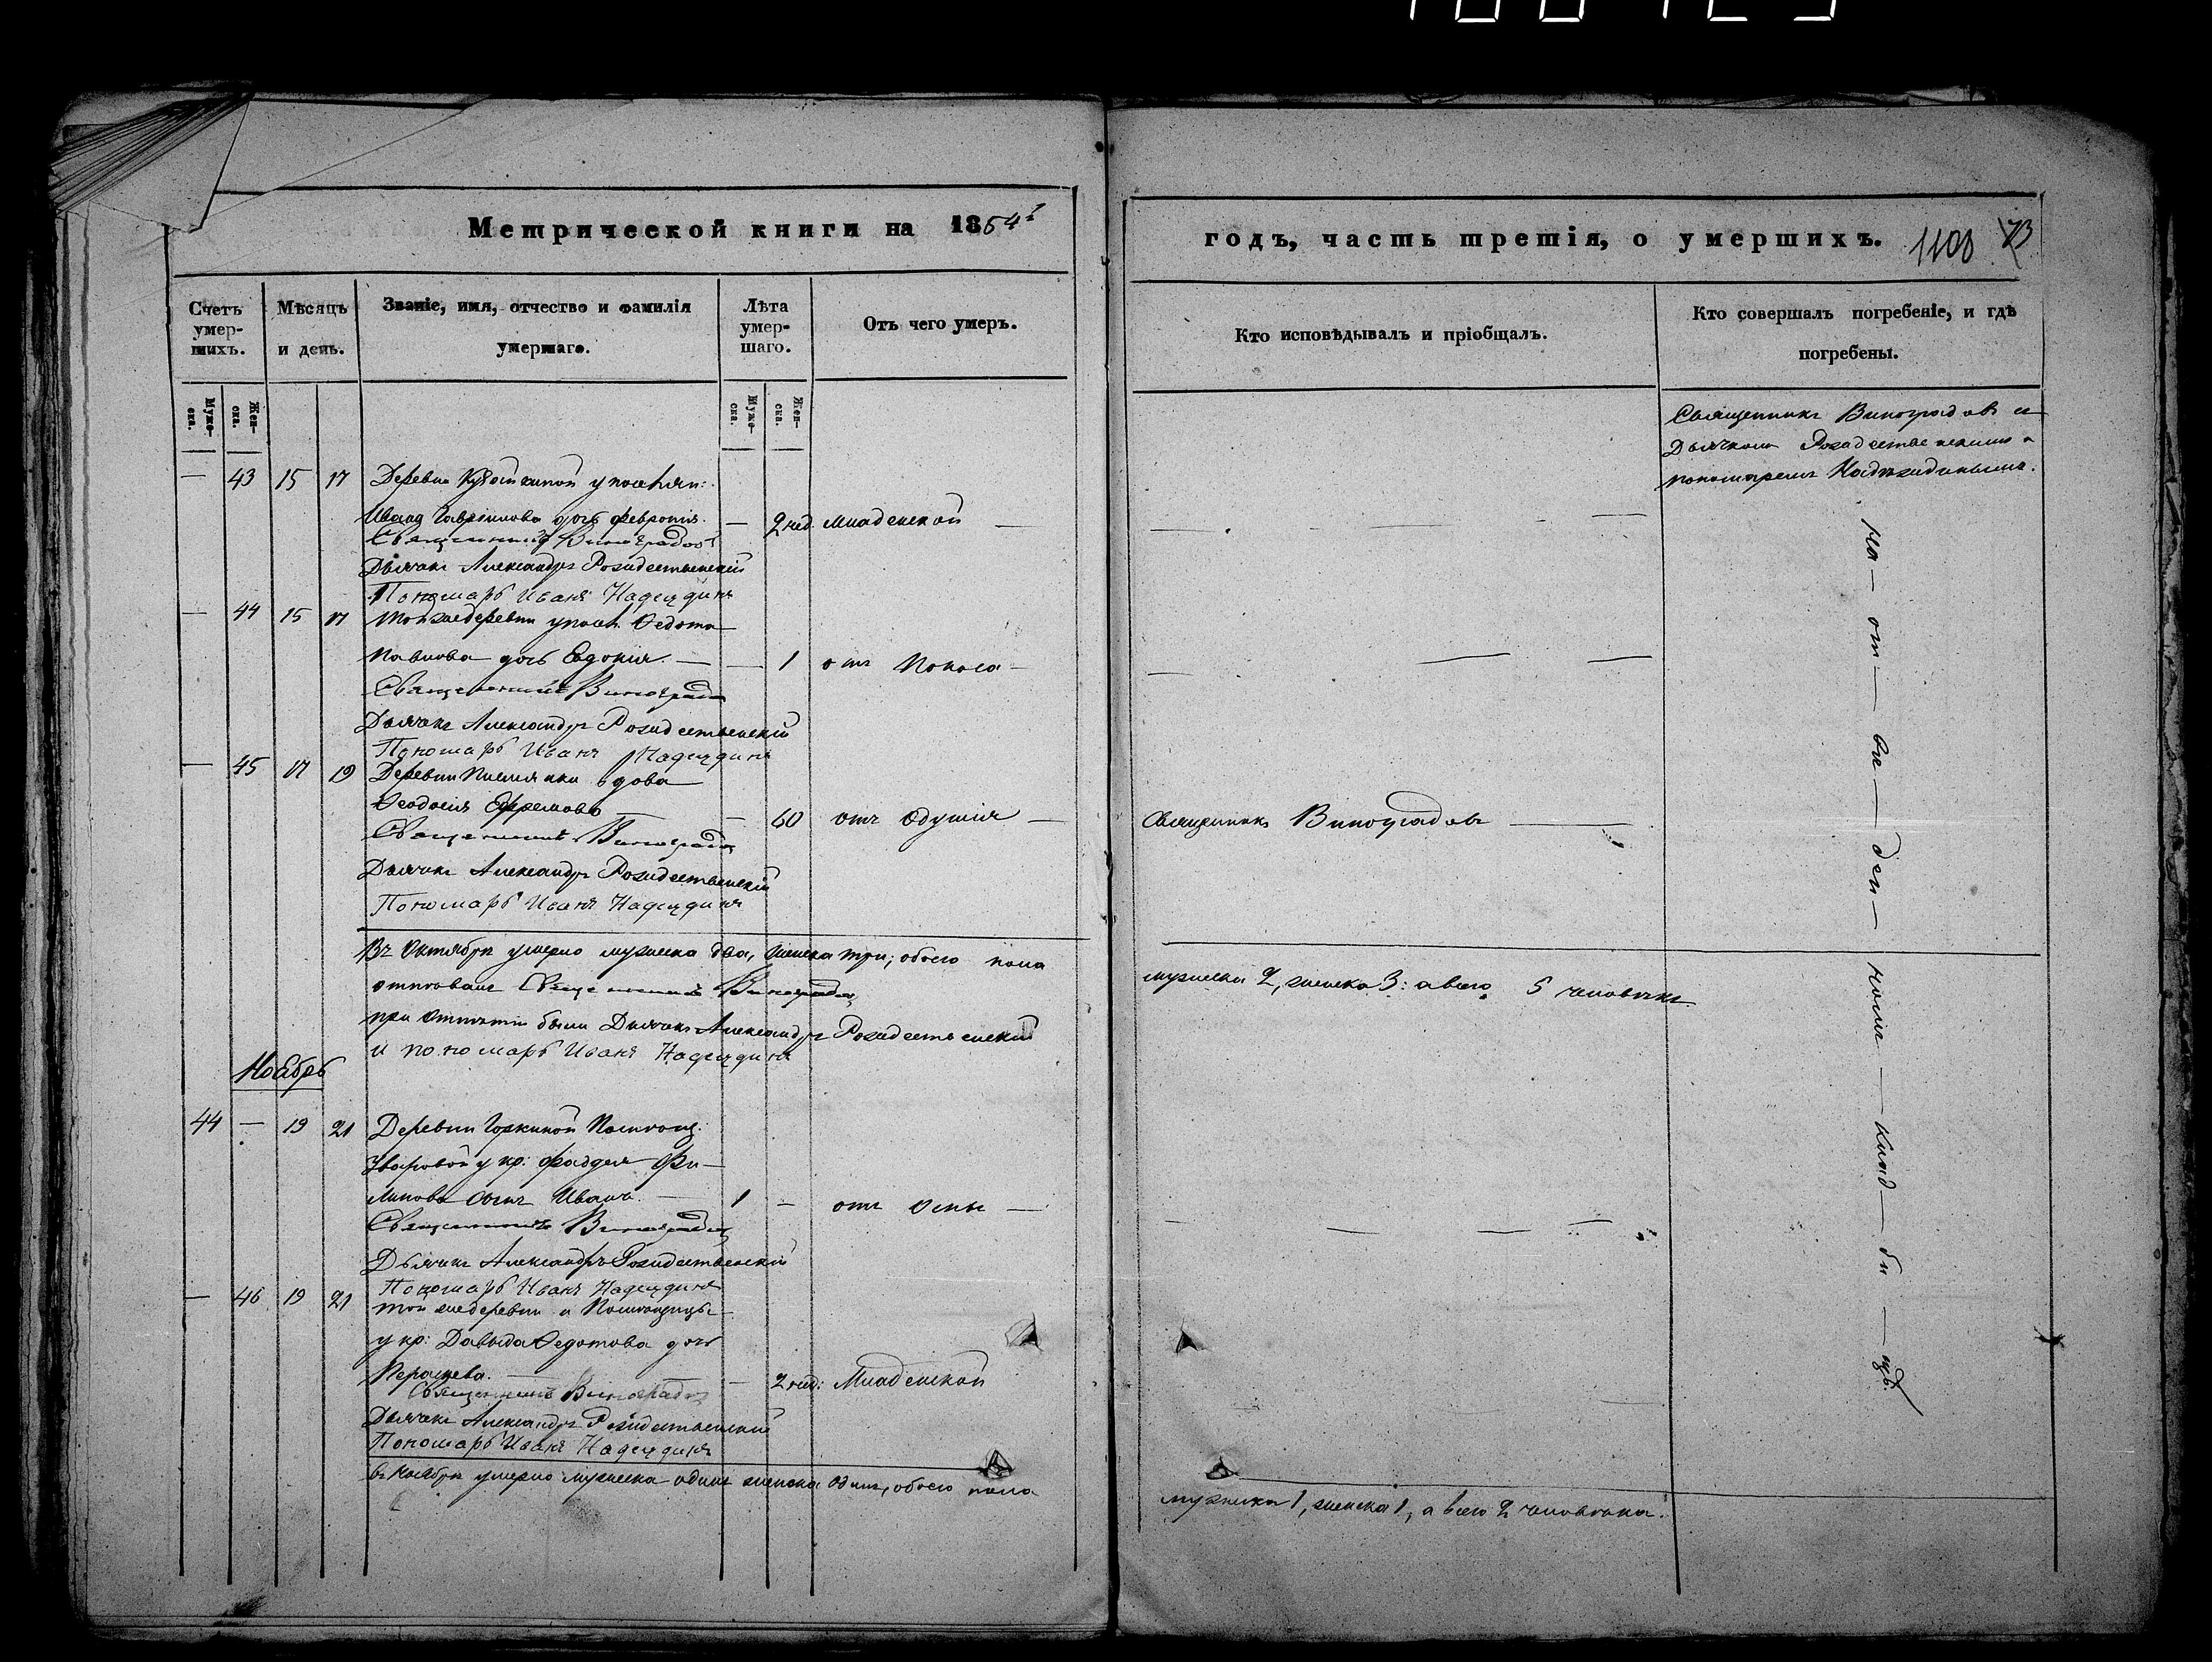 Метрической книги на 1854й
Счетъ умер-шихъ.
Мѣсяцъ и день.
Званіе, имя, отчество и фамилія умершаго.
Лѣта умер-шаго.
Отъ чего умеръ.
Муже-ска.
Жен-ска.
Муже-ска.
Жен-ска.
— 43 15 17 Деревни
Ивана Гаврилова дочь Февронія. — 2 нед. младенской —
Священникъ Виноградовъ
Дьячокъ Александръ Рождественскій
Пономарь Иванъ Надеждинъ
— 44 15 17 той же деревни Федота
Павлова дочь Евдокія. — — 1 отъ поноса —
Священникъ Виноградовъ
Дьячокъ Александръ Рождественскій
Пономарь Иванъ Надеждинъ
— 45 17 19 Деревни вдова
Феодосія Ефремова — — 60 отъ одушія —
Священникъ Виноградовъ
Дьячокъ Александръ Рождественскій
Пономарь Иванъ Надеждинъ
Въ Октябрѣ умерло мужеска два, женска три; обоего пола
отпѣвалъ Священникъ Виноградовъ
при отпѣтіи были Дьячокъ Александръ Рождественскій
и пономарь Иванъ Надеждинъ
Ноябрь
44 — 19 21 Деревни Горкиной Помѣщ:
Уваровой у кр: Фаддея Фи-
липова сынъ Иванъ. — 1 — отъ оспы —
Священникъ Виноградовъ
Дьячокъ Александръ Рождественскій
Пономарь Иванъ Надеждинъ
— 46 19 21 той же деревни и Помѣщицы
у кр: Давыда Федотова дочь
— 2 нед: Младенской
Священникъ Виноградовъ
Дьячокъ Александръ Рождественскій
Пономарь Иванъ Надеждинъ
въ Ноябрѣ умерло мужеска одинъ женска одинъ, обоего пола
годъ, часть третія, о умершихъ. 1108 73
Кто исповѣдывалъ и пріобщалъ.
Кто совершалъ погребеніе, и гдѣ погребены.
Священникъ Виноградовъ съ
Дьячкомъ Рождественскимъ и
пономаремъ Надеждинымъ.
На — от — ве — ден — номъ — клад — би — щѣ.
Священникъ Виноградовъ —
мужеска 2, женска 3: а всего 5 человѣкъ.
мужеска 1, женска 1, а всего 2 человѣка.